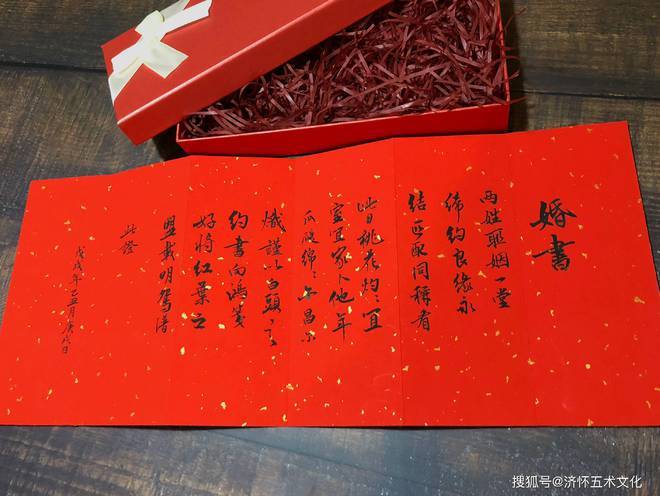 婚書
兩姓聯姻一堂
締約良緣永
結匹配同稱看
此日桃花灼〻宜
室宜家卜他年
瓜瓞綿〻尔昌尔
熾謹以白頭之
約書向鴻箋
好將紅葉之
盟載明鴛譜
此證
戊戌年乙丑月庚戌日
搜狐号@济怀五术文化